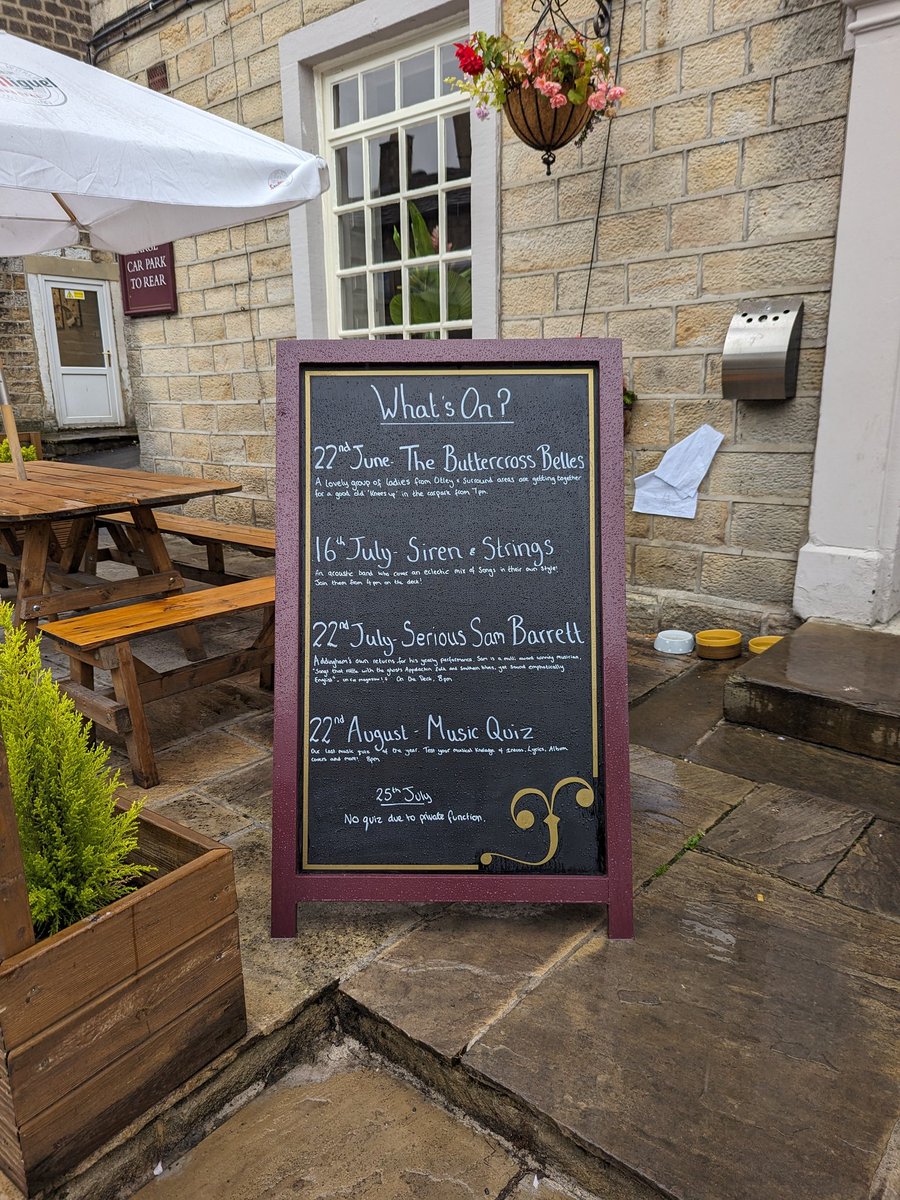 CAR PARK
TO REAR
What's On?
22nd June- The Buttercross Belles
A lovely group of ladies from Otley & Surround areas are getting together
for a good old "Knees up" in the carpark from 7pm.
16th July- Siren & Strings
An acoustic band who cover an eclectic mix of songs in their own style!
Join them from 4pm on the deck!
22nd July- Serious Sam Barrett
Addingham's own returns for his yearly performance. Sam is a multi award winning musician.
"Songs that rattle with the ghosts Appalachian folk and Southern blues, yet sound emphatically
English". On the Deck, 8pm
22nd August - Music Quiz
Our last music quiz of the year. Test your musical Knowlage of Intros, Lyrics, Album
covers and more! 8pm
25th July
No quiz due to private function.